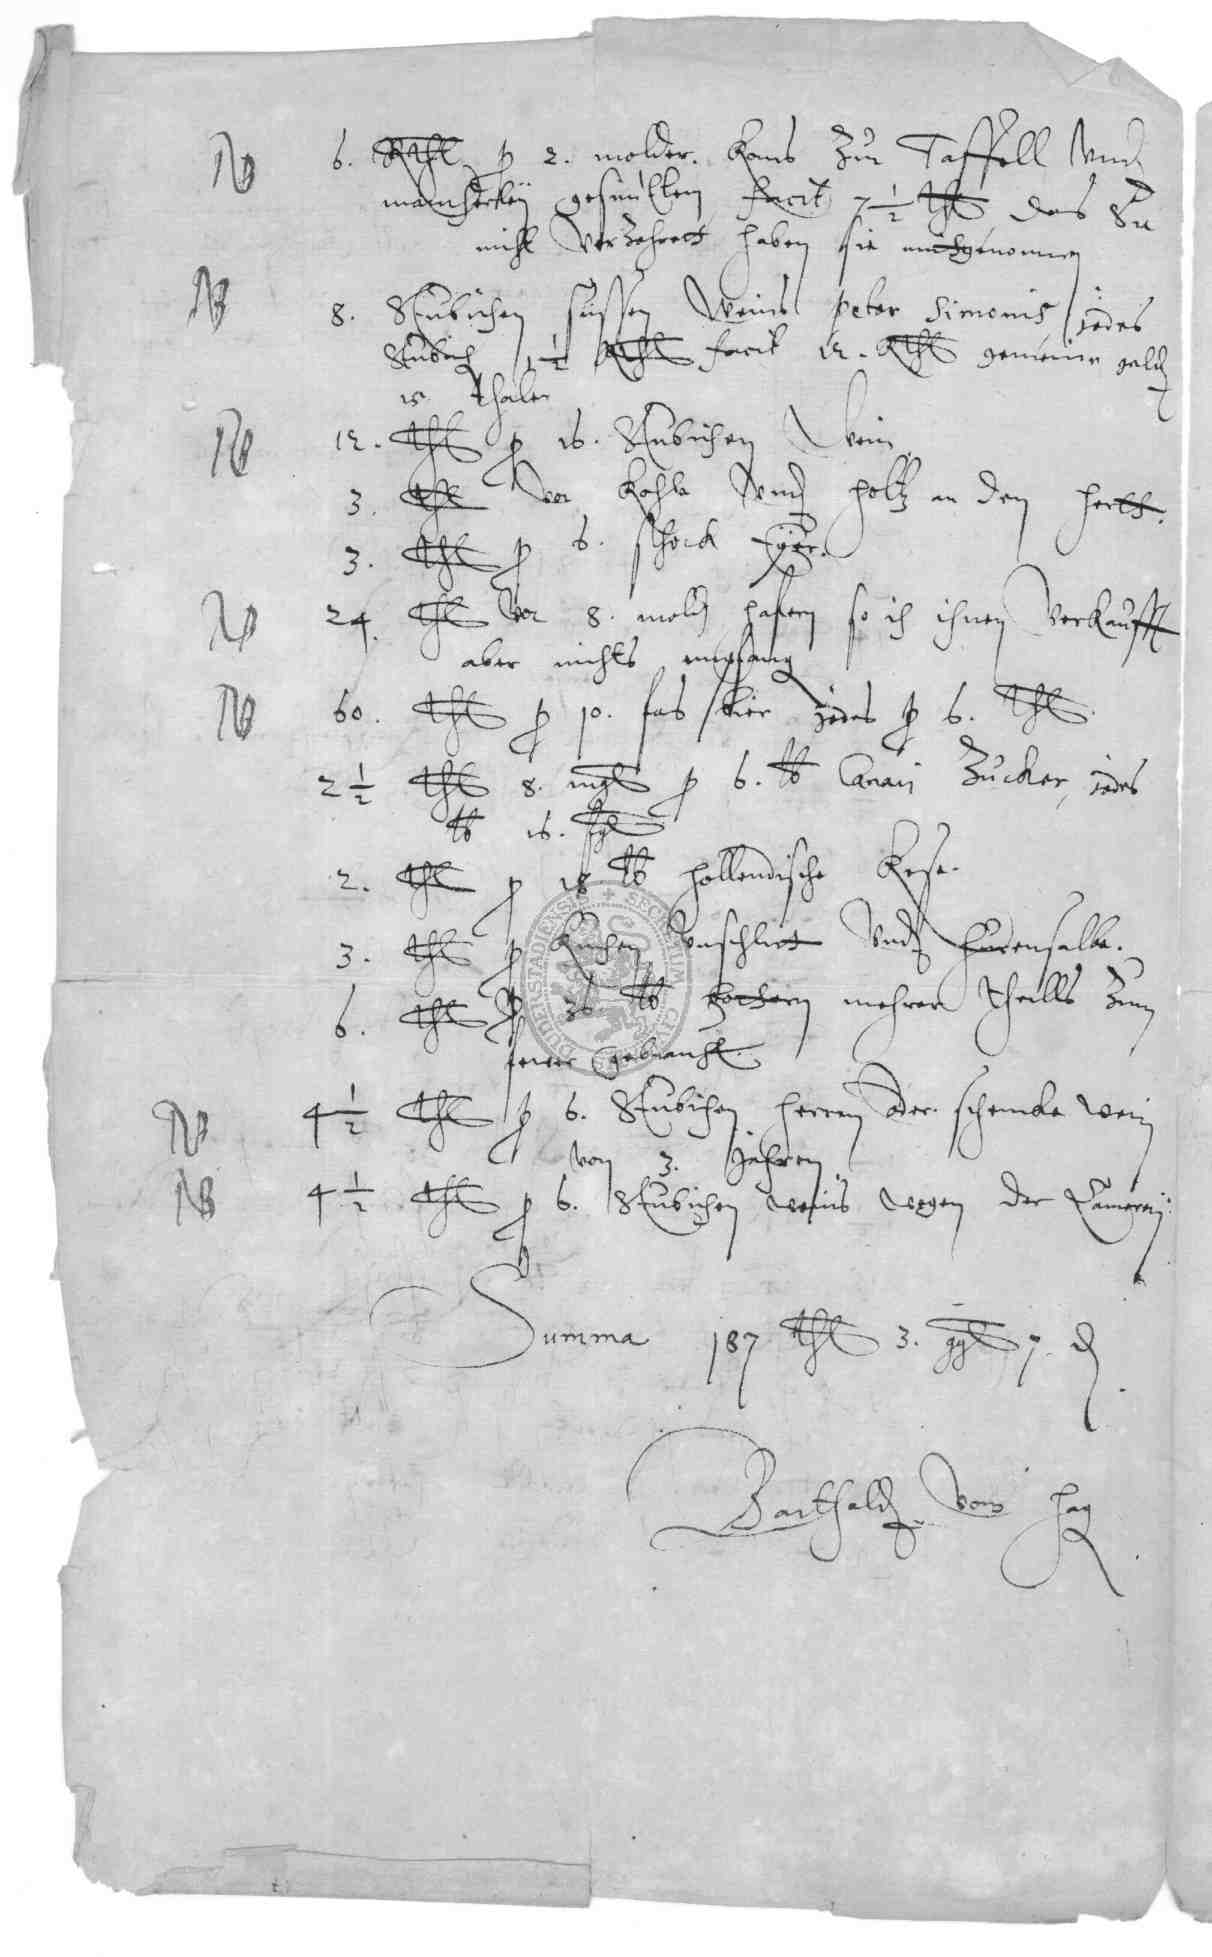 NB 6. Rthl p 2. molder. Korns Zur Taffell vnd
mancherleÿ gesmúllen facit 7 1/2 thl das Sie
nicht verzehrett haben sie mittgenommen
NB 8. Stübichen süssen Weins peter Simonis jedes
Stubich 1 1/2 Rthl facit 12. Rthl gemeine geldt
15 thaler
NB 12. thl p 16. Stubichen Wein
3. thl vor Kohle vnd holtz in den herth.
3. thl p 6. schock Eÿer.
NB 24. thl vor 8. mold hafern so ich ihnen verkaufft
aber nichts empfang
NB 60. thl p 10. fas bier jedes p 6. thl
2 1/2 thl 8. mgl p 6. lb Canari Zucker, jedes
lb 16. fgl
2. thl p 18 lb hollendische Kese.
3. thl p Kuchen vnschlitt vnd
6. thl p 36 lb mehrer theills zum
feuer gebraucht.
NB 4 1/2 thl p 6. Stubichen herren oder schencke wein
von 3. Jahren
NB 4 1/2 thl p 6. Stubichen weins wegen der Camereÿ.
Summa 187 thl 3. ggl 7. d
Barthold vom hag
SECRETUM CIVI DUDERSTADIENSIS